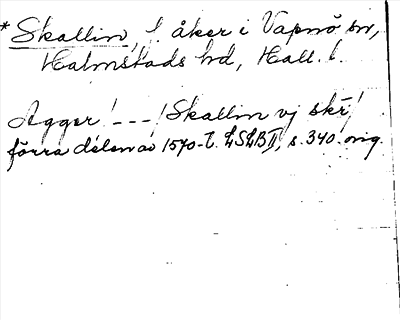 * Skallin, f. åker i Vapnö sn,
Halmstads hd, Hall. l.
Agger! --- / Skallin vj skr̄ /
förra delen av 1570-t. LSLB II, s. 340. orig.